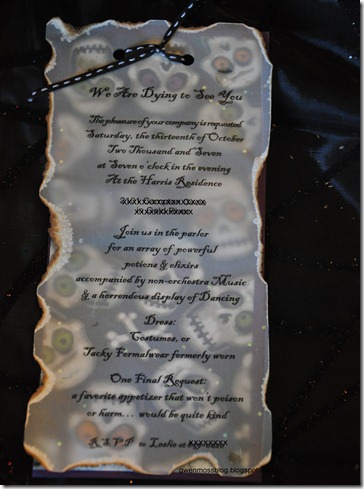 We Are Dying to See You
The pleasure of your company is requested
Saturday, the thirteenth of October
Two Thousand and Seven
at Seven o'clock in the evening
At the Harris Residence
Join us in the parlor
for an array of powerful
potions & elixirs
accompanied by non-orchestra Music
& a horrendous display of Dancing
Dress:
Costumes, or
Tacky Formalwear formerly worn
One Final Request:
a favorite appetizer that won't poison
or harm... would be quite kind
R.S.V.P to Leslie at
gwenmossblog.blogspot